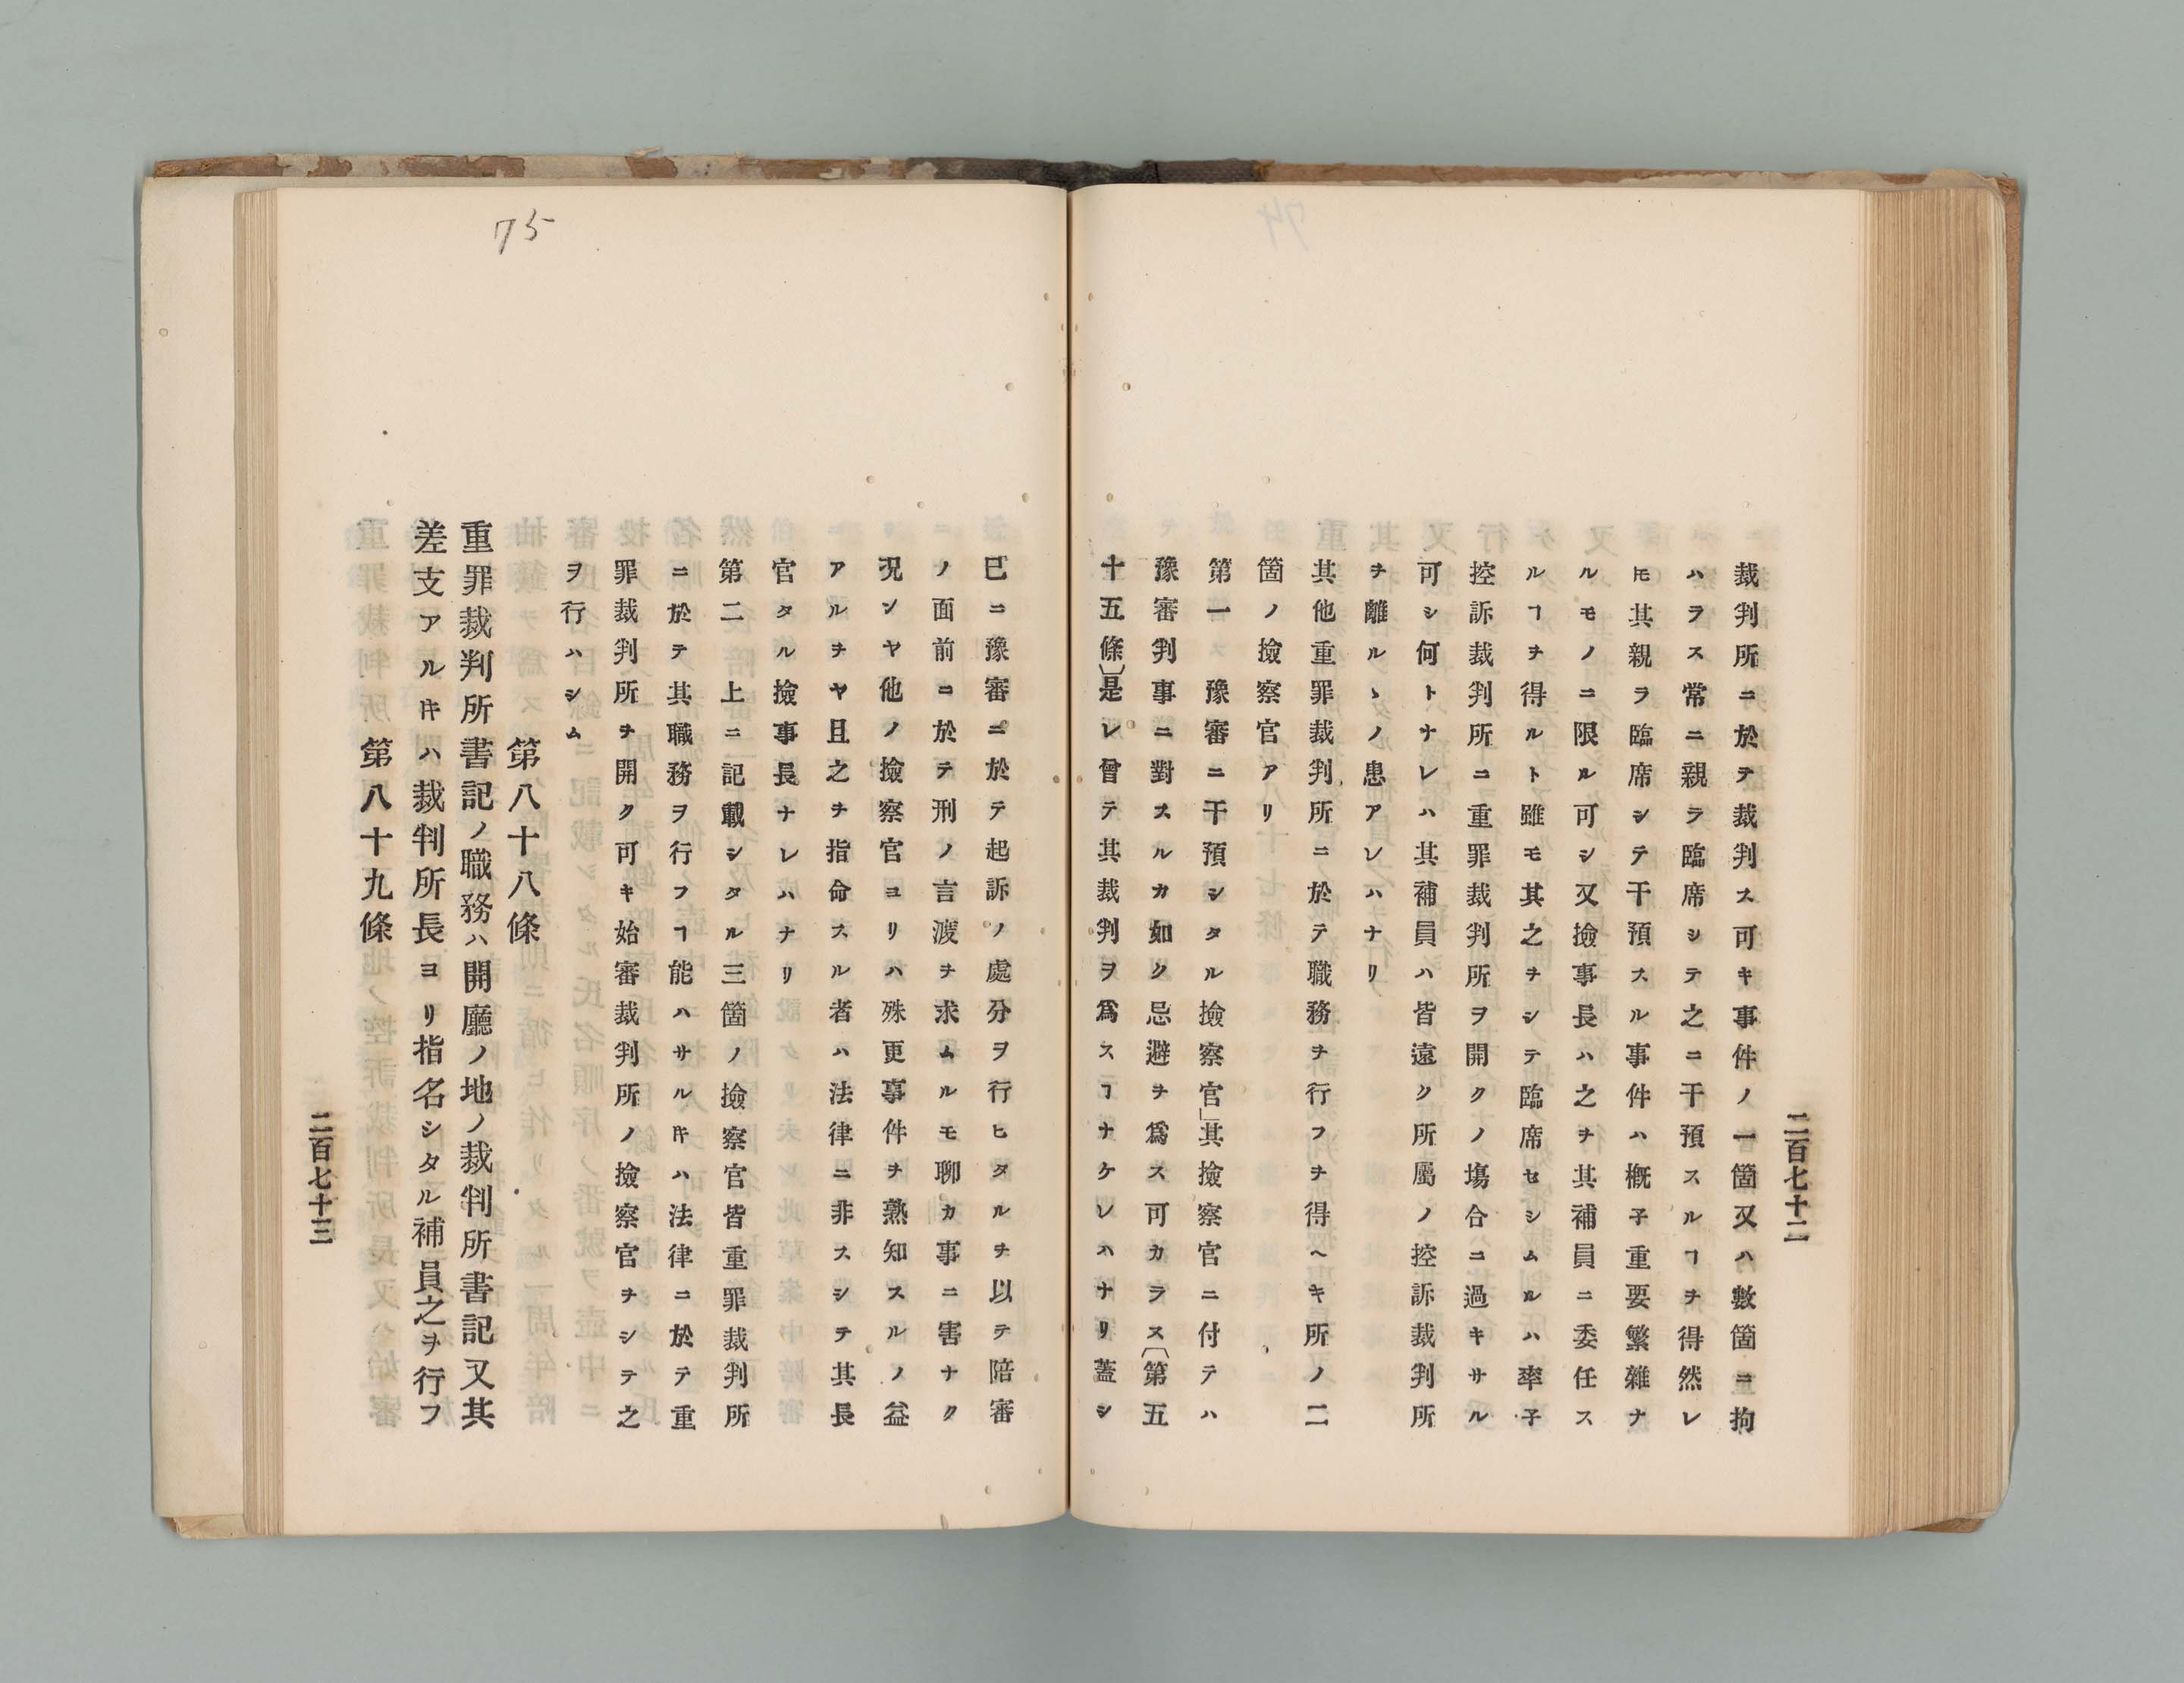 二百七十二
裁判所ニ於テ裁判ス可キ事件ノ一箇又ハ數箇ニ拘
ハラス常ニ親ラ臨席シテ之ニ干預スルヿヲ得然レ
𪜈其親ラ臨席シテ干預スル事件ハ槪子重要繁雜ナ
ルモノニ限ル可シ又撿事長ハ之ヲ其補員ニ委任ス
ルヿヲ得ルト雖モ其之ヲシテ臨席セシムルハ率子
控訴裁判所ニ重罪裁判所ヲ開クノ塲合ニ過キサル
可シ何トナレハ其補員ハ皆遠ク所屬ノ控訴裁判所
ヲ離ルヽノ患アレハナリ
其他重罪裁判所ニ於テ職務ヲ行フヲ得ヘキ所ノ二
箇ノ撿察官アリ
第一　豫審ニ干預シタル撿察官」其撿察官ニ付テハ
豫審判事ニ對スルカ如ク忌避ヲ爲ス可カラス〔第五
十五條〕是レ曾テ其裁判ヲ爲スヿナケレハナリ蓋シ
巳ニ豫審ニ於テ起訴ノ處分ヲ行ヒタルヲ以テ陪審
ノ面前ニ於テ刑ノ言渡ヲ求ムルモ聊カ事ニ害ナク
况ンヤ他ノ撿察官ヨリハ殊更事件ヲ熟知スルノ益
アルヲヤ且之ヲ指命スル者ハ法律ニ非スシテ其長
官タル撿事長ナレハナリ
第二　上ニ記載シタル三箇ノ撿察官皆重罪裁判所
ニ於テ其職務ヲ行フヿ能ハサルキハ法律ニ於テ重
罪裁判所ヲ開ク可キ始審裁判所ノ撿察官ヲシテ之
ヲ行ハシム
第八十八條
重罪裁判所書記ノ職務ハ開廳ノ地ノ裁判所書記又其
差支アルキハ裁判所長ヨリ指名シタル補員之ヲ行フ
第八十九條
二百七十三
75